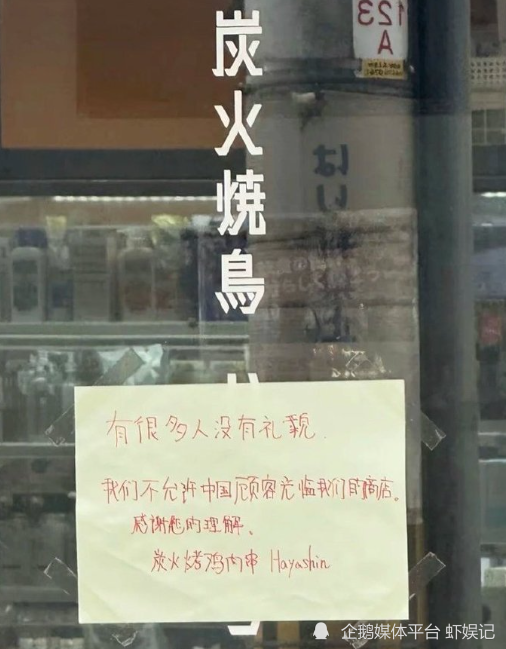 炭火焼鳥
123
A
はり
有很多人没有礼貌.
我们不允许中国顾客光临我们的商店。
感谢您的理解。
炭火烤鸡肉串 Hayashin
企鹅媒体平台 虾娱记